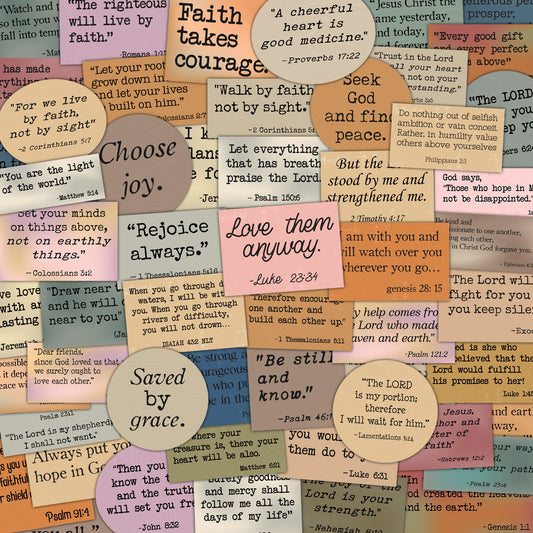 "Watch and p
so that you w
-Mat
"The righteous
will live by
faith."
-Romans 1:1
Faith
takes
courage.
"A cheerful
heart is
good medicine."
-Proverbs 17:22
Jesus Christ the
same yesterday,
and today,
forever
prosper;
"Every good gift
and every perfect
above"
"Trust in the Lord
all your heart
not on your
standing."
has made
everything
"Let your roots
grow down in
and let your lives
built on him."
Colossians 2:7
"Walk by faith
not by sight."
-2 Corinthians 5:7
Seek
God
and find
peace.
Do nothing out of selfish
ambition or vain conceit.
Rather, in humility value
others above yourselves
Philippians 2:3
"The LORD
keep yo
"For we live
by faith,
not by sight"
-2 Corinthians 5:7
Choose
joy.
I k
plans
for
-Jerem
Let everything
that has breath
praise the Lord.
-Psalm 150:6
But the Lo
stood by me and
strengthened me.
2 Timothy 4:17
God says,
'Those who hope in M
not be disappointed.'
"You are the light
of the world."
-Matthew 5:14
Set your minds
on things above,
not on earthly
things."
-Colossians 3:2
"Rejoice
always."
-1 Thessalonians 5:16
Love them
anyway.
-Luke 23:34
I am with you and
will watch over you
wherever you go...
genesis 28: 15
Be kind and
compassionate to one another,
forgiving each other,
in Christ God forgave you.
-Ephesians 4:3
"The LORD will
fight for you
you keep silen
-Exod
love
with an
lasting
"Draw near t
and he will d
near to you"
When you go through d
waters, I will be wit
you. When you go through
rivers of difficulty,
you will not drown...
ISAIAH 43:2 NLT
Therefore encourag
one another and
build each other up."
-1 Thessalonians 5:11
My help comes fro
the Lord who made
heaven and earth."
-Psalm 121:2
Blessed is she who
believed that the
Lord would fulfill
his promises to her!
Luke 1:45
"Dear friends,
since God loved us that w
we surely ought to
love each other."
Saved
by
grace.
Be strong a
"Be still
and
know."
-Psalm 46:1
"The LORD
is my portion;
therefore
I will wait for him."
-Lamentations 3:24
Psalm 23:1
"The Lord is my shepherd,
I shall not want."
Always put yo
hope in Go
Where your
treasure is, there your
heart will be also.
Matthew 6:21
you wou
them do to y
-Luke 6:31
Jesus,
author and
perfecter of
faith"
-Hebrews 12:2
your path
-Psalm 25:4
Psalm 91:4
"Then you
know the t
and the truth
will set you free
-John 8:32
Surely goodness
and mercy shall
follow me all the
days of my life"
The joy of the
Lord is your
strength."
-Nehemiah 8:10
created the heavens
and the earth."
-Genesis 1:1